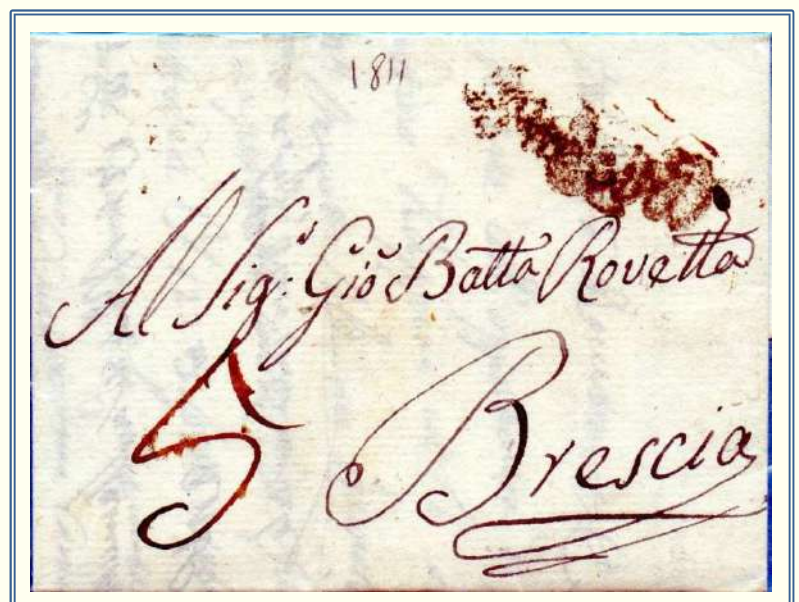 1811
Al Sig.r Giō Batta Rovetta
5
Brescia